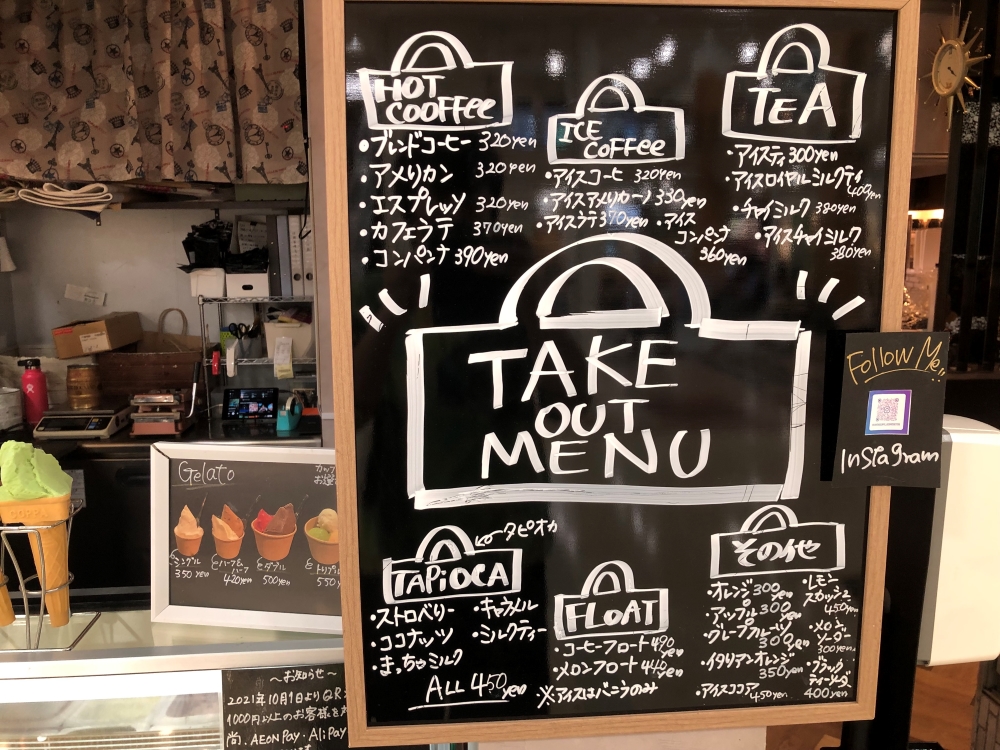 HOT
COOFFee
・ブレンドコーヒー 320yen
・アメリカン 320yen
・エスプレッソ 320yen
・カフェラテ 370yen
・コンパンナ 390yen
ICE
COFFee
・アイスコーヒ 320yen
・アイスアメリカーノ 330yen
・アイスラテ 370yen
・アイス
コンパンナ
360yen
TEA
・アイスティ 300yen
・アイスロイヤルミルクティ
400yen
・チャイミルク 380yen
・アイスチャイミルク
380yen
TAKE
OUT
MENU
Follow Me!!
Instagram
Gelato
シングル
350yen
ハーフ&
ハーフ
420yen
ダブル
500yen
トリプル
550
タピオカ
TAPiOCA
・ストロベリー
・ココナッツ
・まっちゃミルク
・キャラメル
・ミルクティー
ALL 450yen
FLOAT
・コーヒーフロート 490yen
・メロンフロート 440yen
※アイスはバニラのみ
その他
・オレンジ 300yen
・アップル 300yen
・グレープフルーツ
300yen
・イタリアンオレンジ
350yen
・アイスココア 450yen
・レモン
スカッシュ
450yen
・メロン
ソーダー
300yen
・ブラック
ティーソーダ
400yen
〜お知らせ〜
2021年10月1日よりQR
1000円以上のお客様を
尚、AEON Pay・AliPay